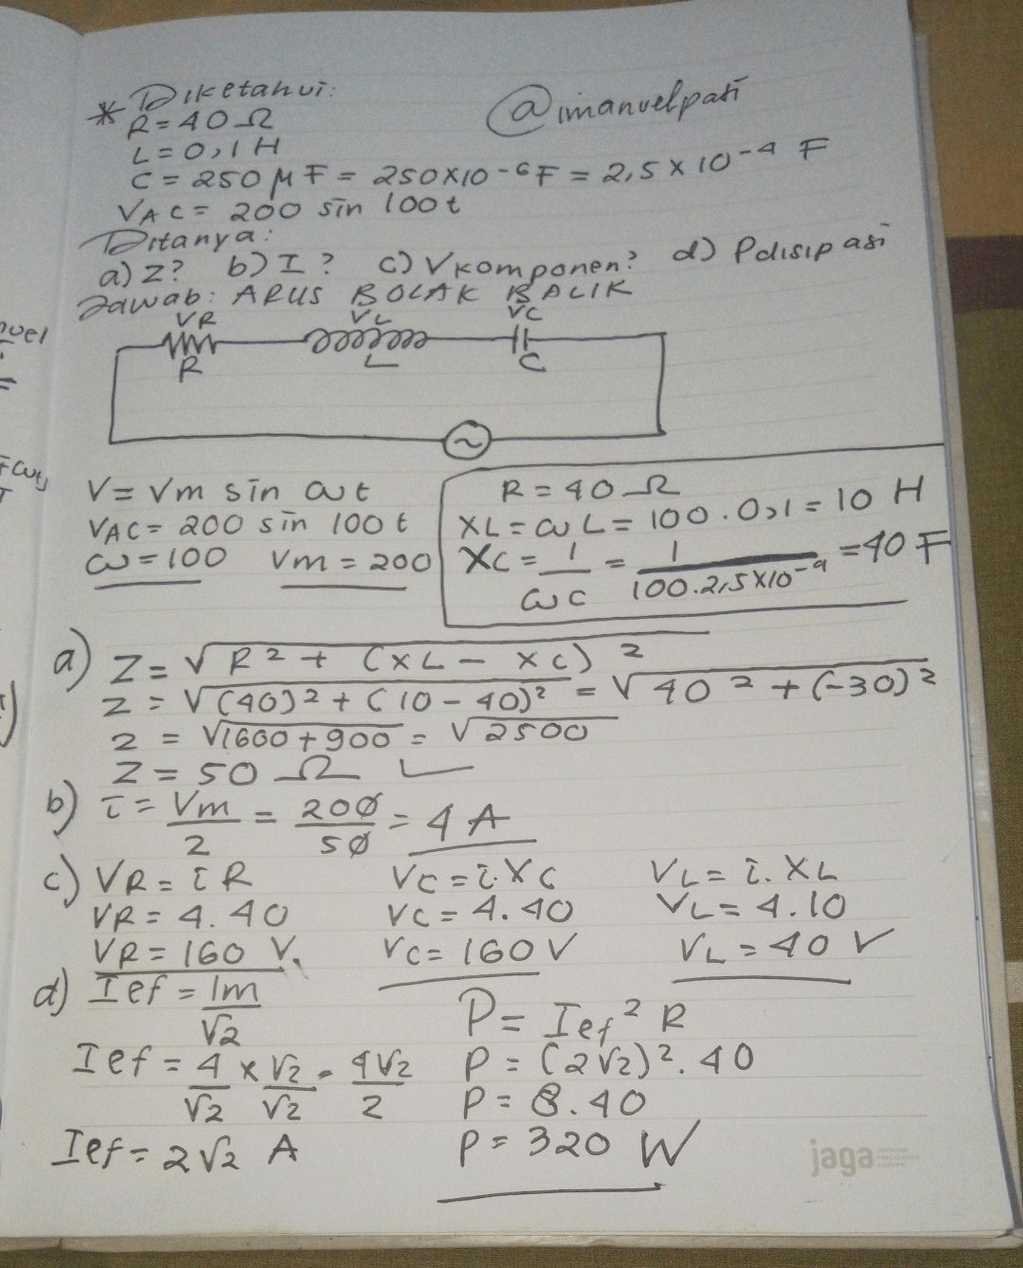 * Diketahui:
@imanuelpati
R = 40 Ω
L = 0,1 H
C = 250 μF = 250x10-6F = 2,5 x 10-4 F
VAC = 200 sin 100t
Ditanya:
a) Z? b) I? c) Vkomponen? d) Pdisipasi
Jawab: ARUS BOLAK BALIK
VR VL VC
R L C
~
V = Vm sin ωt
VAC = 200 sin 100t
ω = 100 Vm = 200
R = 40 Ω
XL = ωL = 100 . 0,1 = 10 H
XC = 1/ωC = 1/100.2,5x10-4 = 40 F
a) Z = √R2 + (XL - XC)2
Z = √(40)2 + (10 - 40)2 = √402 + (-30)2
Z = √1600 + 900 = √2500
Z = 50 Ω
b) i = Vm/Z = 200/50 = 4 A
c) VR = iR VC = i.XC VL = i.XL
VR = 4.40 VC = 4.40 VL = 4.10
VR = 160 V. VC = 160 V VL = 40 V
d) Ief = Im/√2
Ief = 4/√2 x √2/√2 = 4√2/2
Ief = 2√2 A
P = Ief2 R
P = (2√2)2.40
P = 8.40
P = 320 W
jaga